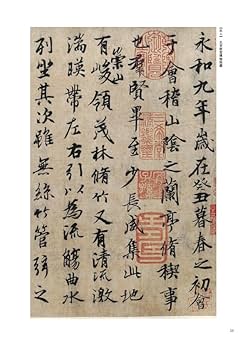 永和九年歲在癸丑暮春之初會
于會稽山陰之蘭亭脩稧事
也羣賢畢至少長咸集此地
有崇山峻領茂林脩竹又有清流激
湍暎帶左右引以為流觴曲水
列坐其次雖無絲竹管弦之